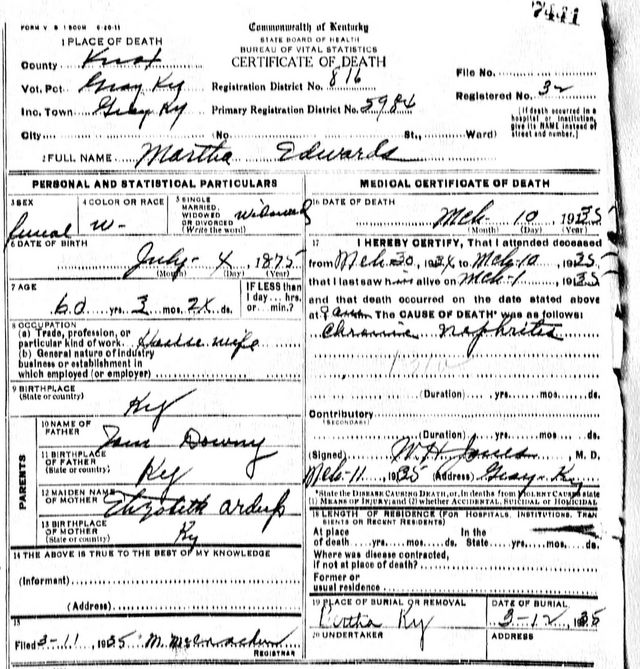 FORM V S 1 500M 6-20-11
7441
Commonwealth of Kentucky
STATE BOARD OF HEALTH
BUREAU OF VITAL STATISTICS
CERTIFICATE OF DEATH
1 PLACE OF DEATH
County Knox
Vot. Pct. Gray Ky
Inc. Town Gray Ky
City
Registration District No. 816
Primary Registration District No. 5984
(No. St., Ward)
File No.
Registered No. 32
[If death occurred in a hospital or institution, give its NAME instead of street and number.]
2 FULL NAME Martha Edwards
PERSONAL AND STATISTICAL PARTICULARS
3 SEX
4 COLOR OR RACE W-
5 SINGLE
MARRIED,
WIDOWED
OR DIVORCED
(Write the word)
Widowed
6 DATE OF BIRTH
July - 4 1875
(Month) (Day) (Year)
7 AGE
60 yrs. 3 mos. 2 ds.
IF LESS than
1 day... hrs.
or... min.?
8 OCCUPATION
(a) Trade, profession, or
particular kind of work. House wife
(b) General nature of industry
business or establishment in
which employed (or employer)
9 BIRTHPLACE
(State or country)
Ky
PARENTS
10 NAME OF
FATHER
Tom Downy
11 BIRTHPLACE
OF FATHER
(State or country)
Ky
12 MAIDEN NAME
OF MOTHER
Elizabeth
13 BIRTHPLACE
OF MOTHER
(State or country)
Ky
14 THE ABOVE IS TRUE TO THE BEST OF MY KNOWLEDGE
(Informant)
(Address)
15
Filed 3-11 1935 M. McCracken
REGISTRAR
MEDICAL CERTIFICATE OF DEATH
16 DATE OF DEATH
Mch 10 1935
(Month) (Day) (Year)
17 I HEREBY CERTIFY, That I attended deceased
from Mch 30, 1934 to Mch 10 1935
that I last saw her alive on Mch 1 1935
and that death occurred on the date stated above
at The CAUSE OF DEATH* was as follows:
Chronic Nephrites
(Duration) yrs. mos. ds.
Contributory
(SECONDARY)
(Duration) yrs. mos. ds.
(Signed) W. H. Jones, M. D.
Mch-11 1935 (Address) Gray Ky
*State the DISEASE CAUSING DEATH, or, in deaths from VIOLENT CAUSES state
(1) MEANS OF INJURY; and (2) whether ACCIDENTAL, SUICIDAL or HOMICIDAL
18 LENGTH OF RESIDENCE (FOR HOSPITALS, INSTITUTIONS, TRAN
SIENTS OR RECENT RESIDENTS)
At place In the
of death yrs. mos. ds. State yrs. mos. ds.
Where was disease contracted,
if not at place of death?
Former or
usual residence
19 PLACE OF BURIAL OR REMOVAL
Bertha Ky
DATE OF BURIAL
3-12 1935
20 UNDERTAKER
ADDRESS